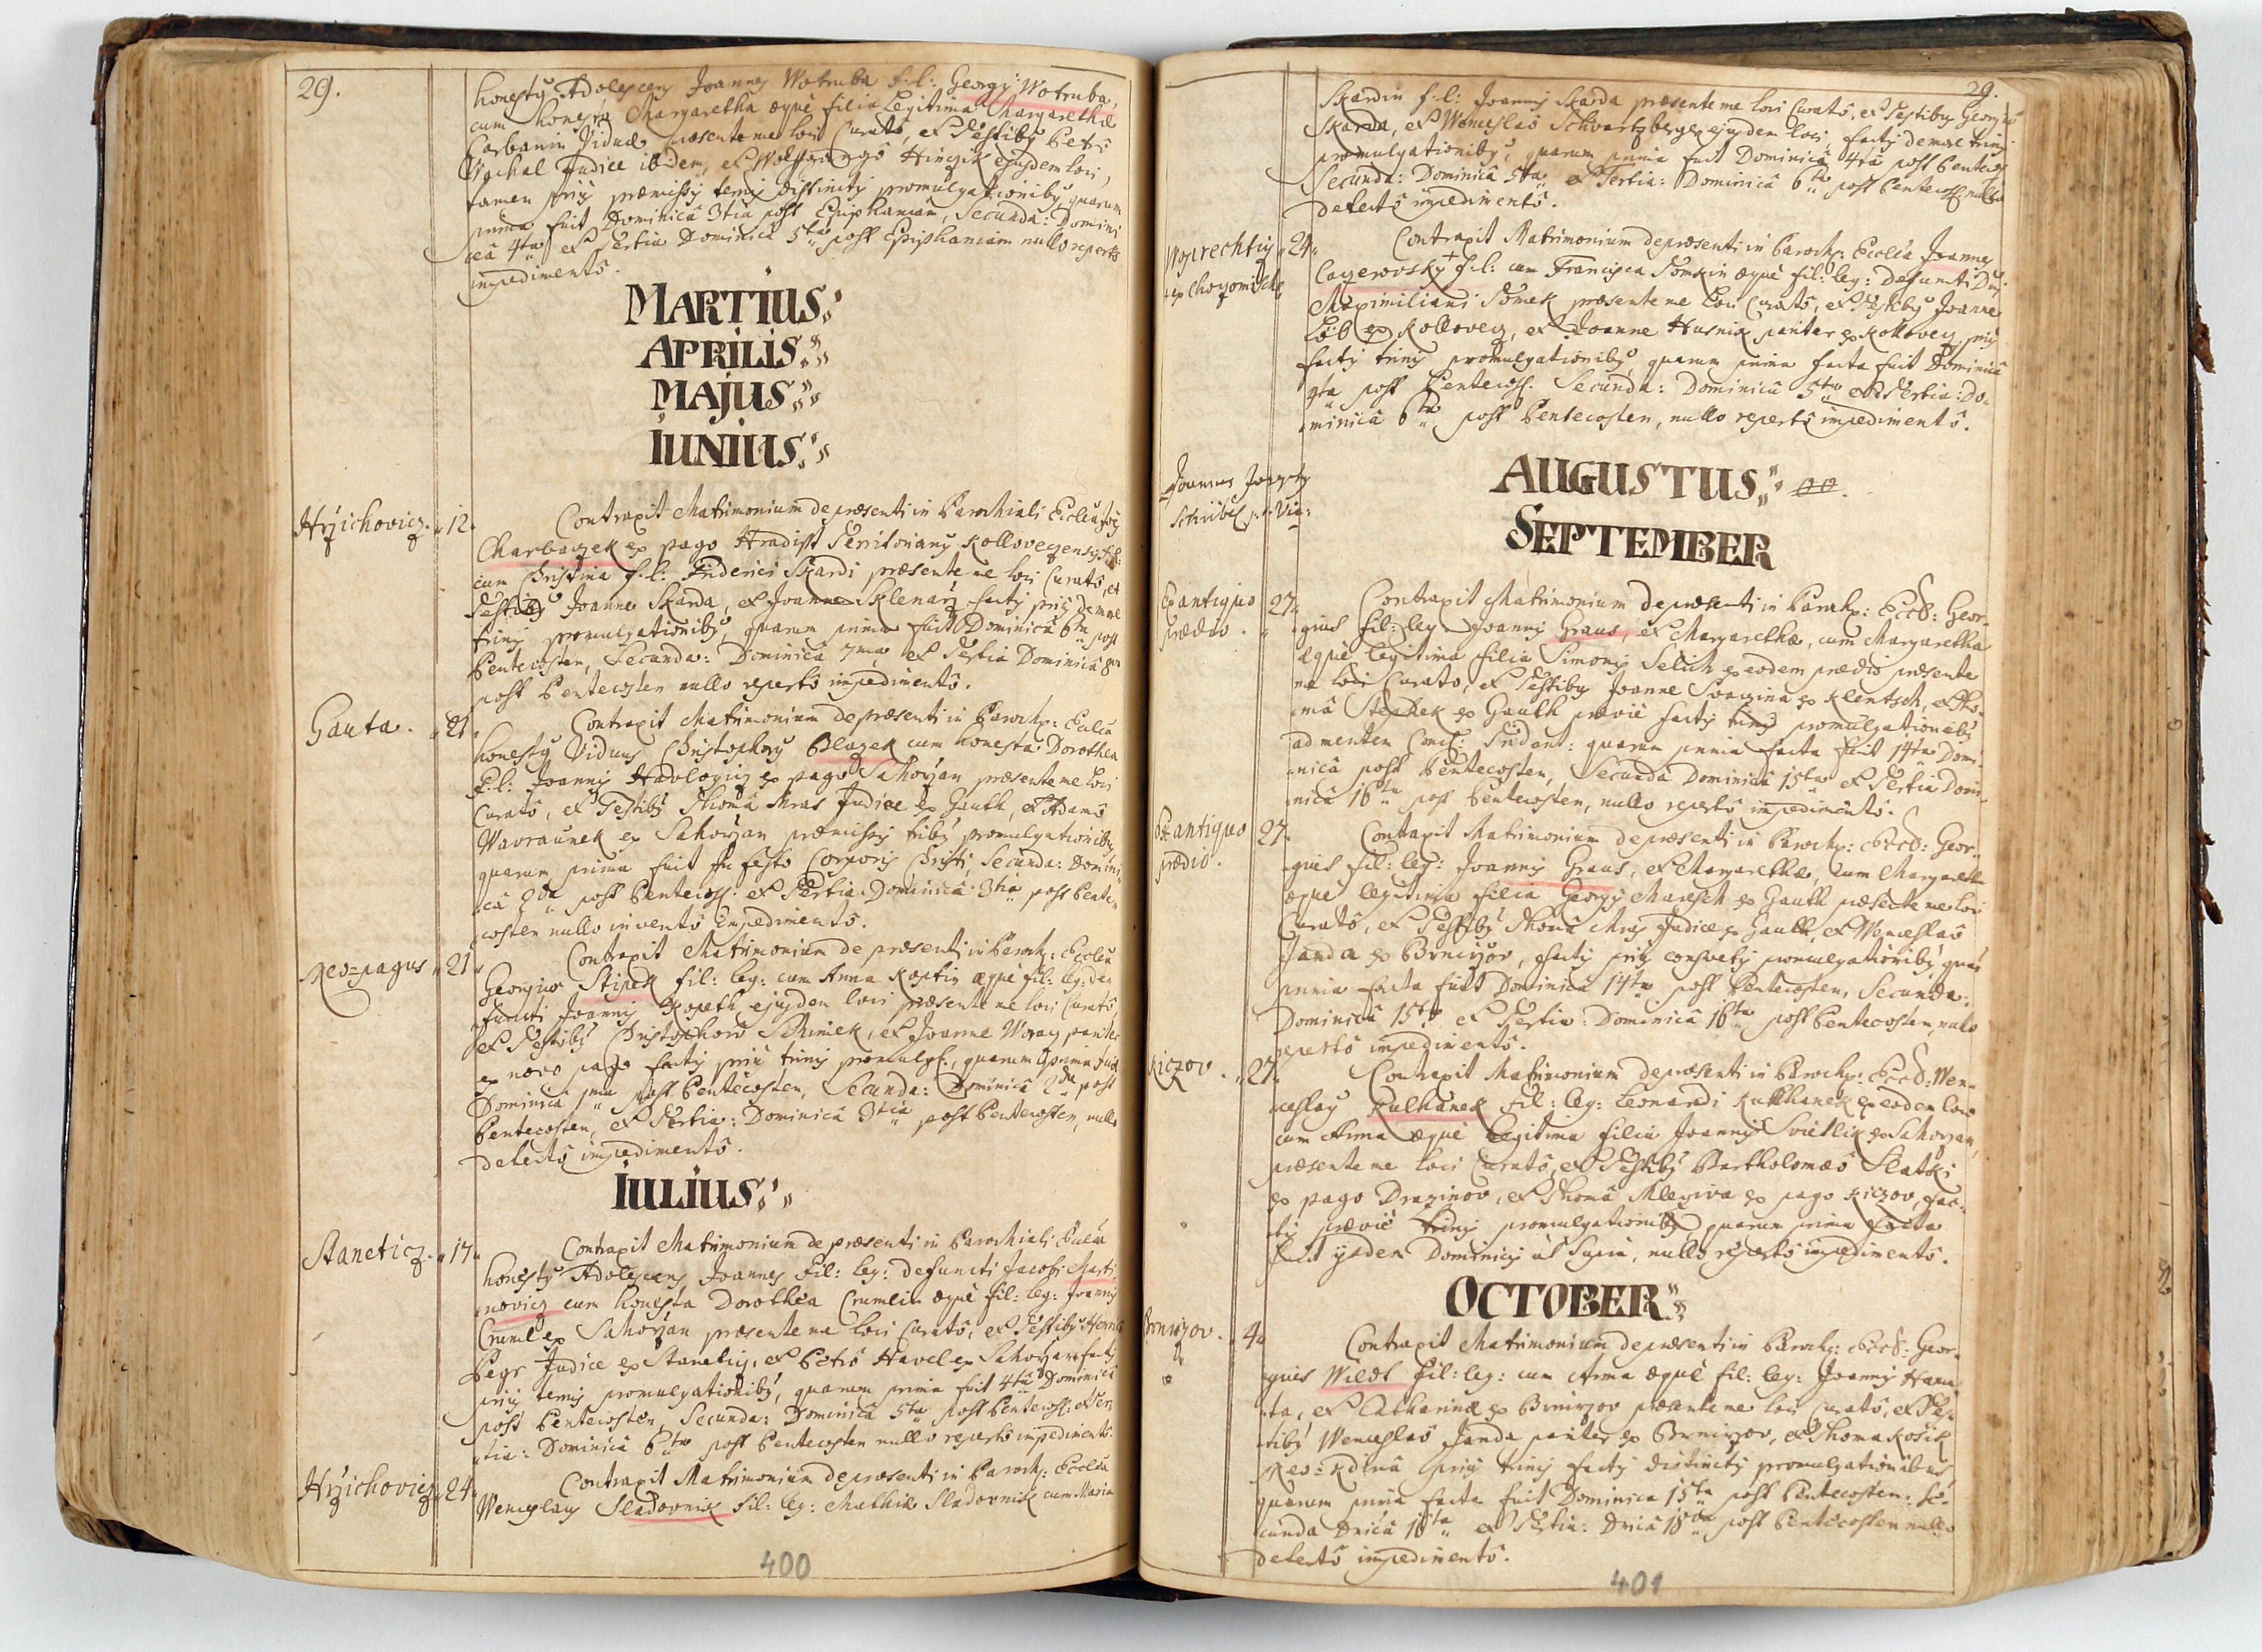 29.
honestus Adolescens Joannes Wotruba f: l: Georgÿ Wotruba,
cum honesta Margaretha æque filia Legitima Margarethæ
Viduæ præsente me loci Curatô, et Testibus Petrô
Judice ibidem, et ejusdem loci,
tamen prius præmissis ternis distinctis promulgationibus, quarum
prima fuit Dominicâ 3tiâ post Epiphaniam, Secunda: Domini
câ 4ta et Tertia Dominicâ 5ta post Epiphaniam nullo repertô
impedimentô.
MARTIUS
APRILIS
MAJUS
IUNIUS
Hrzichovicz. 12.
Contraxit Matrimonium de præsenti in Parochiali Ecclesia
Charvaczek ex pago Hradist Territorians Kolloveczensis f: l:
cum Christina f: l: Friderici Skardi præsente me loci Curatô, et
Testibus Joanne Skarda, et Joanne Sklenarz factis prius de more
trinis promulgationibus, quarum prima fuit Dominicâ 6ta post
Pentecosten, Secunda: Dominicâ 7ma et Tertia Dominicâ 8va
post Pentecosten nullo repertô impedimentô.
Gauta. 21.
Contraxit Matrimonium de præsenti in Paroch: Ecclia
honestus Viduus Christophorus Blazek cum honesta Dorothea
f: l: Joannis ex pago Sahorzan præsente me loci
Curatô, et Testibus Thomâ Mras Judice ex Gauth, et Adamô
Wavraunek ex Sahorzan præmissis tribus promulgationibus
quarum prima fuit in festo Corporis Christi, Secunda: Domini
câ 2da post Pentecost: et Tertia: Dominicâ 3tia post Pente
costen nullo inventô impedimentô.
Neo=pagus 21
Contraxit Matrimonium de præsenti in Paroch: Ecclia
Georgius Stipek fil: leg: cum Anna Koptin æque fil: leg: de
functi Joannis Kopeth ejusdem loci præsente me loci Curatô,
et Testibus Christophorô Schimek, et Joanne Woray pariter
ex novo pago factis prius trinis promulgt:, quarum prima fuit
Dominicâ 1ma post Pentecosten, Secunda: Dominicâ 2da post
Pentecosten, et Tertia: Dominicâ 3tia post Pentecosten, nullo
detectô impedimentô.
IULIUS
Staneticz. 17.
Contraxit Matrimonium de præsenti in Parochiali Ecclia
honestus Adolescens Joannes fil: leg: defuncti Jacobi Marti
novicz cum honesta Dorothea Crumlin æque fil: leg: Joannis
Cruml ex Sahorzan præsente me loci Curatô, et Testibus
Pegr Judice ex Staneticz, et Petrô Havel ex Sahorzan factis
prius ternis promulgationibus, quarum prima fuit 4ta Dominicâ
post Pentecosten, Secunda: Dominicâ 5ta post Pentecost: et Ter
tia: Dominicâ 6ta post Pentecosten nullo repertô impedimentô.
Hrzichovicz 24.
Contraxit Matrimonium de præsenti in Paroch: Ecclia
Wenceslaus Sladovnik fil: leg: Mathiæ Sladovnik cum Maria
400
29.
Skardin f: l: Joannis Skarda præsente me loci Curatô, et Testibus Georgiô
Skarda, et Wenceslaô Schvartzberger ejusdem loci, factis de more trinis
promulgationibus, quarum prima fuit Dominicâ 4ta post Pentecos
Secunda: Dominicâ 5ta et Tertia: Dominicâ 6ta post Pentecost: nullô
detectô impedimentô.
24.
Contraxit Matrimonium de præsenti in Paroch: Ecclia Joannes
f: l: cum Francisca Tomkin æque fil: leg: defuncti Dni
Maximiliani Tomek præsente me loci Curatô, et Testibus Joanne
Löb ex Kollovecz, et Joanne Husnik pariter ex Kollovecz, prius
factis trinis promulgationibus, quarum prima facta fuit Dominicâ
4ta post Pentecost: Secunda: Dominicâ 5ta et Tertia: Do-
minicâ 6ta post Pentecosten, nullo repertô impedimentô.
AUGUSTUS
Joannes
SEPTEMBER
Ex antiquo 27.
prædio.
Contraxit Matrimonium de præsenti in Paroch: Eccl: Geor-
gius fil: leg: Joannis Graus, et Margarethæ, cum Margaretha
æque legitima filia Simonis Selich ex eodem prædiô præsente
me loci Curato, et Testibus Joanne ex Klentsch, et Tho-
mâ Stephek ex Gauth prævie factis trinis promulgationibus
ad mentem Conc: Trident: quarum prima facta fuit 14ta Domi-
nicâ post Pentecosten, Secunda Dominicâ 15ta et Tertia Domi-
nicâ 16ta post Pentecosten, nullo repertô impedimentô.
Ex antiquo 27.
prædio.
Contraxit Matrimonium de præsenti in Paroch: Eccl: Geor-
gius fil: leg: Joannis Graus, et Margarethæ, cum Margaretha
æque legitima filia Georgÿ Maresch ex Gauth præsente me loci
Curatô, et Testibus Thomâ Mras Judice ex Gauth, et Wenceslaô
Janda ex Brnirzov, factis prius consvetis promulgationibus quar
prima facta fuit Dominicâ 14ta post Pentecosten, Secunda:
Dominicâ 15ta et Tertia: Dominicâ 16ta post Pentecosten, nullo
repertô impedimentô.
Kiczov. 27.
Contraxit Matrimonium de præsenti in Paroch: Eccl: Wen-
ceslaus Kulhanek fil: leg: Leonardi Kulhanek ex eodem loco
cum Anna æque legitima filia Joannis Svietlik ex Sahorzan,
præsente me loci Curatô, et Testibus Bartholomæô Slatki
ex pago Drazinov, et Thomâ Mleziva ex pago Kiczov, fac-
tis prævie trinis promulgationibus, quarum prima facta
fuit ijsdem Dominicis ut Supra, nullo repertô impedimentô.
OCTOBER
Brnirzov. 4.
Contraxit Matrimonium de præsenti in Paroch: Eccl: Geor-
gius Wiedl fil: leg: cum Anna æque fil: leg: Joannis Hanu
ta, et Catharinæ ex Brnirzov præsente me loci Curatô, et Tes-
tibus Wenceslaô Janda pariter ex Brnirzov, et Thoma Kosik
Neo=Kdinâ prius trinis factis distinctis promulgationibus
quarum prima facta fuit Dominica 15ta post Pentecosten: Se-
cunda Dnicâ 16ta et Tertia: Dnicâ 18va post Pentecosten nullo
detectô impedimentô.
401